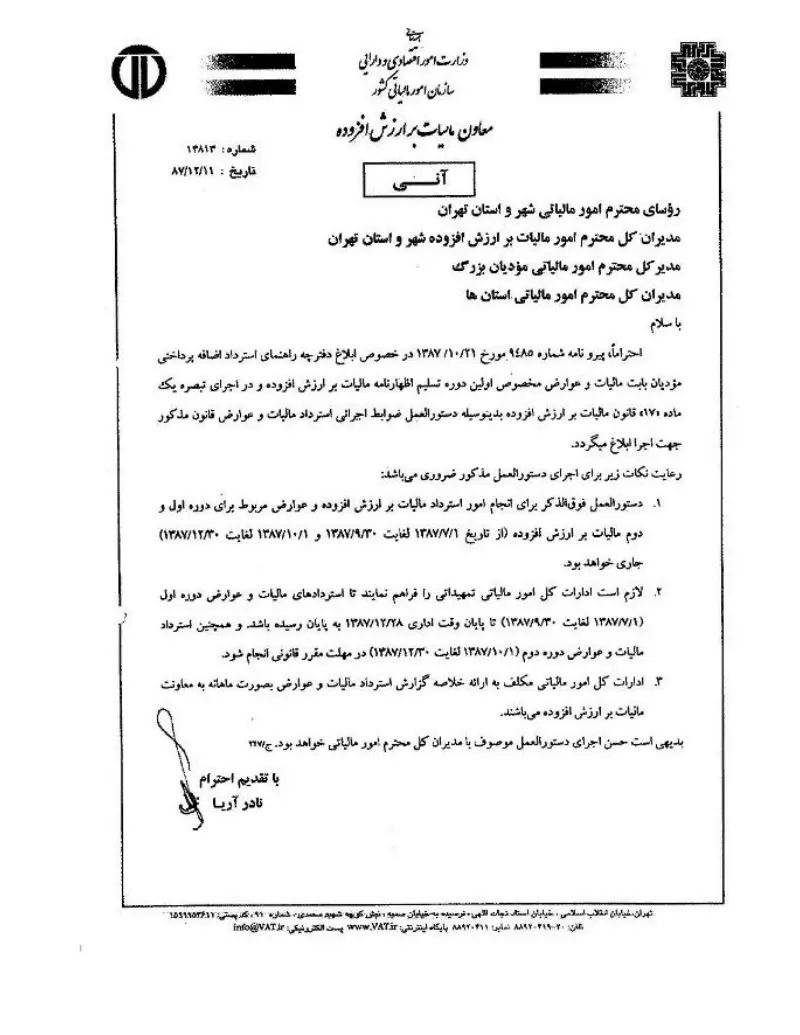 وزارت امور اقتصادی و دارایی
سازمان امور مالیاتی کشور
معاون مالیات بر ارزش افزوده
شماره : ۱۳۸۱۳
تاریخ : ۸۷/۱۲/۱۱
آنــی
رؤسای محترم امور مالیاتی شهر و استان تهران
مدیران کل محترم امور مالیات بر ارزش افزوده شهر و استان تهران
مدیرکل محترم امور مالیاتی مؤدیان بزرگ
مدیران کل محترم امور مالیاتی استان ها
با سلام
احتراماً، پیرو نامه شماره ۹۴۸۵ مورخ ۱۳۸۷/۱۰/۲۱ در خصوص ابلاغ دفترچه راهنمای استرداد اضافه پرداختی
مؤدیان بابت مالیات و عوارض مخصوص اولین دوره تسلیم اظهارنامه مالیات بر ارزش افزوده و در اجرای تبصره یک
ماده «۱۷» قانون مالیات بر ارزش افزوده بدینوسیله دستورالعمل ضوابط اجرائی استرداد مالیات و عوارض قانون مذکور
جهت اجرا ابلاغ میگردد.
رعایت نکات زیر برای اجرای دستورالعمل مذکور ضروری می‌باشد:
۱. دستورالعمل فوق‌الذکر برای انجام امور استرداد مالیات بر ارزش افزوده و عوارض مربوط برای دوره اول و
دوم مالیات بر ارزش افزوده (از تاریخ ۱۳۸۷/۷/۱ لغایت ۱۳۸۷/۹/۳۰ و ۱۳۸۷/۱۰/۱ لغایت ۱۳۸۷/۱۲/۳۰)
جاری خواهد بود.
۲. لازم است ادارات کل امور مالیاتی تمهیداتی را فراهم نمایند تا استردادهای مالیات و عوارض دوره اول
(۱۳۸۷/۷/۱ لغایت ۱۳۸۷/۹/۳۰) تا پایان وقت اداری ۱۳۸۷/۱۲/۲۸ به پایان رسیده باشد. و همچنین استرداد
مالیات و عوارض دوره دوم (۱۳۸۷/۱۰/۱ لغایت ۱۳۸۷/۱۲/۳۰) در مهلت مقرر قانونی انجام شود.
۳. ادارات کل امور مالیاتی مکلف به ارائه خلاصه گزارش استرداد مالیات و عوارض بصورت ماهانه به معاونت
مالیات بر ارزش افزوده می‌باشند.
بدیهی است حسن اجرای دستورالعمل موصوف با مدیران کل محترم امور مالیاتی خواهد بود.
با تقدیم احترام
نادر آریا
تهران، خیابان انقلاب اسلامی ، خیابان استاد نجات الهی، نرسیده به خیابان سمیه ، نبش کوچه شهید محمدی ، شماره ۹۱۰ ، کد پستی:
تلفن: ۲۰-۸۸۹۲۰۴۱۹ نمابر: ۸۸۹۲۰۴۱۱ پایگاه اینترنتی: www.VAT.ir پست الکترونیکی: info@VAT.ir